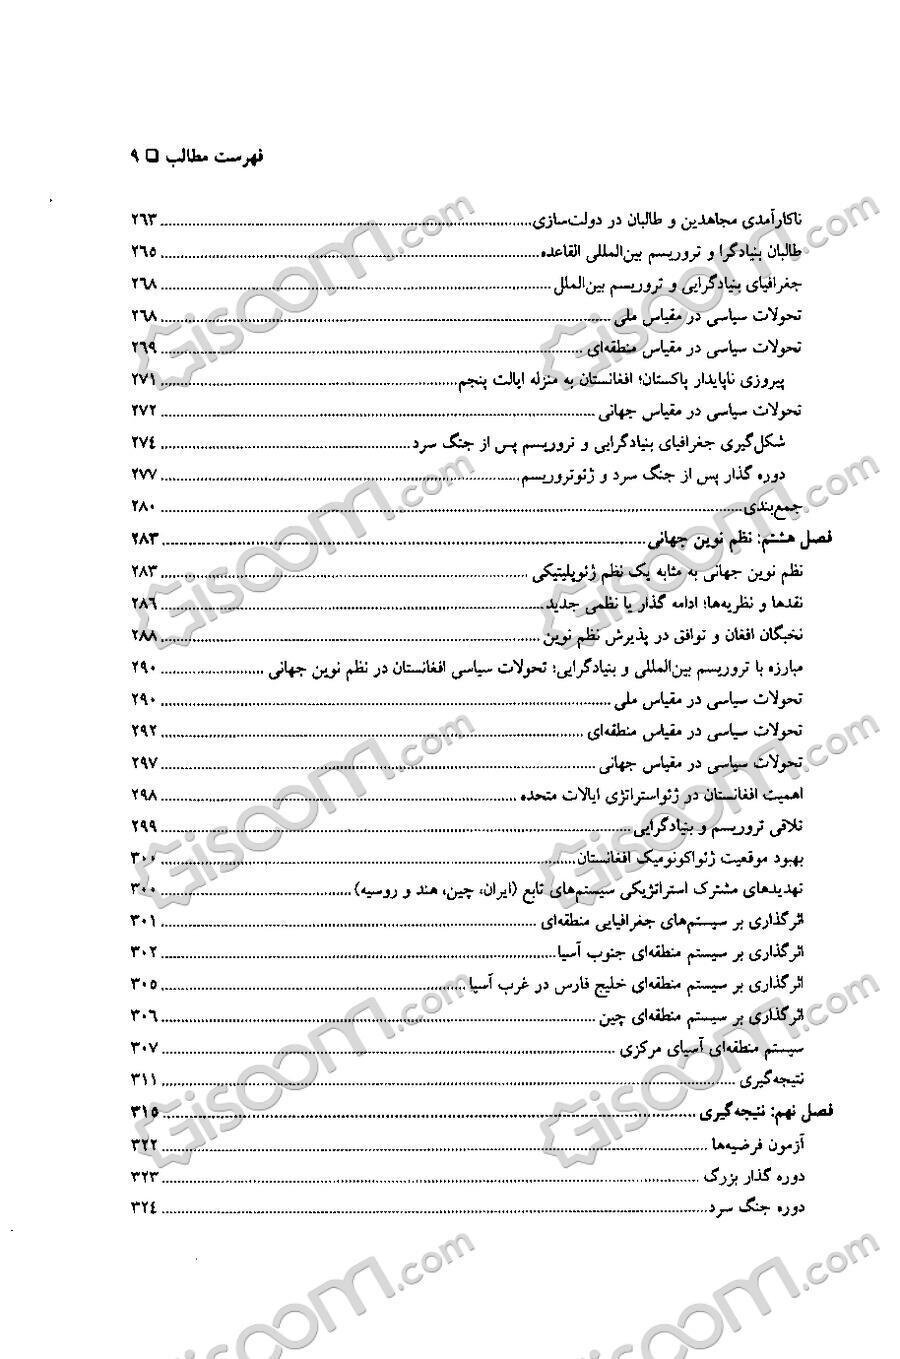 فهرست مطالب ❑ ٩
ناکارآمدی مجاهدین و طالبان در دولت‌سازی ........ ٢٦٣
طالبان بنیادگرا و تروریسم بین‌المللی القاعده ........ ٢٦٥
جغرافیای بنیادگرایی و تروریسم بین‌الملل ........ ٢٦٨
تحولات سیاسی در مقیاس ملی ........ ٢٦٨
تحولات سیاسی در مقیاس منطقه‌ای ........ ٢٦٩
پیروزی ناپایدار پاکستان؛ افغانستان به منزله ایالت پنجم ........ ٢٧١
تحولات سیاسی در مقیاس جهانی ........ ٢٧٢
شکل‌گیری جغرافیای بنیادگرایی و تروریسم پس از جنگ سرد ........ ٢٧٤
دوره گذار پس از جنگ سرد و ژئوتروریسم ........ ٢٧٧
جمع‌بندی ........ ٢٨٠
فصل هشتم: نظم نوین جهانی ........ ٢٨٣
نظم نوین جهانی به مثابه یک نظم ژئوپلیتیکی ........ ٢٨٣
نقدها و نظریه‌ها؛ ادامه گذار یا نظمی جدید ........ ٢٨٦
نخبگان افغان و توافق در پذیرش نظم نوین ........ ٢٨٨
مبارزه با تروریسم بین‌المللی و بنیادگرایی؛ تحولات سیاسی افغانستان در نظم نوین جهانی ........ ٢٩٠
تحولات سیاسی در مقیاس ملی ........ ٢٩٠
تحولات سیاسی در مقیاس منطقه‌ای ........ ٢٩٢
تحولات سیاسی در مقیاس جهانی ........ ٢٩٧
اهمیت افغانستان در ژئواستراتژی ایالات متحده ........ ٢٩٨
تلاقی تروریسم و بنیادگرایی ........ ٢٩٩
بهبود موقعیت ژئواکونومیک افغانستان ........ ٣٠٠
تهدیدهای مشترک استراتژیکی سیستم‌های تابع (ایران، چین، هند و روسیه) ........ ٣٠٠
اثرگذاری بر سیستم‌های جغرافیایی منطقه‌ای ........ ٣٠١
اثرگذاری بر سیستم منطقه‌ای جنوب آسیا ........ ٣٠٢
اثرگذاری بر سیستم منطقه‌ای خلیج فارس در غرب آسیا ........ ٣٠٥
اثرگذاری بر سیستم منطقه‌ای چین ........ ٣٠٦
سیستم منطقه‌ای آسیای مرکزی ........ ٣٠٧
نتیجه‌گیری ........ ٣١١
فصل نهم: نتیجه‌گیری ........ ٣١٥
آزمون فرضیه‌ها ........ ٣٢٢
دوره گذار بزرگ ........ ٣٢٣
دوره جنگ سرد ........ ٣٢٤
Giscoom.com
Giscoom.com
Giscoom.com
Giscoom.com
Giscoom.com
Giscoom.com
Giscoom.com
Giscoom.com
Giscoom.com
Giscoom.com